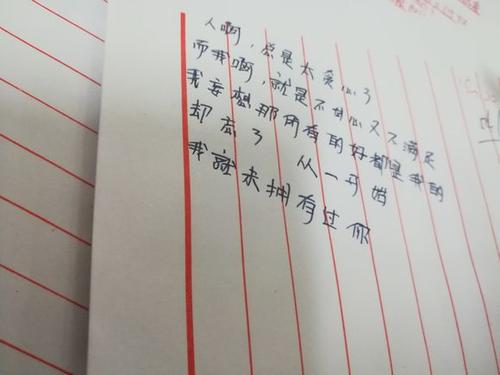 人啊，总是太贪心了
而我啊，就是不甘心又不满足
我妄想那所有的好都是我的
却忘了 从一开始
我就未拥有过你